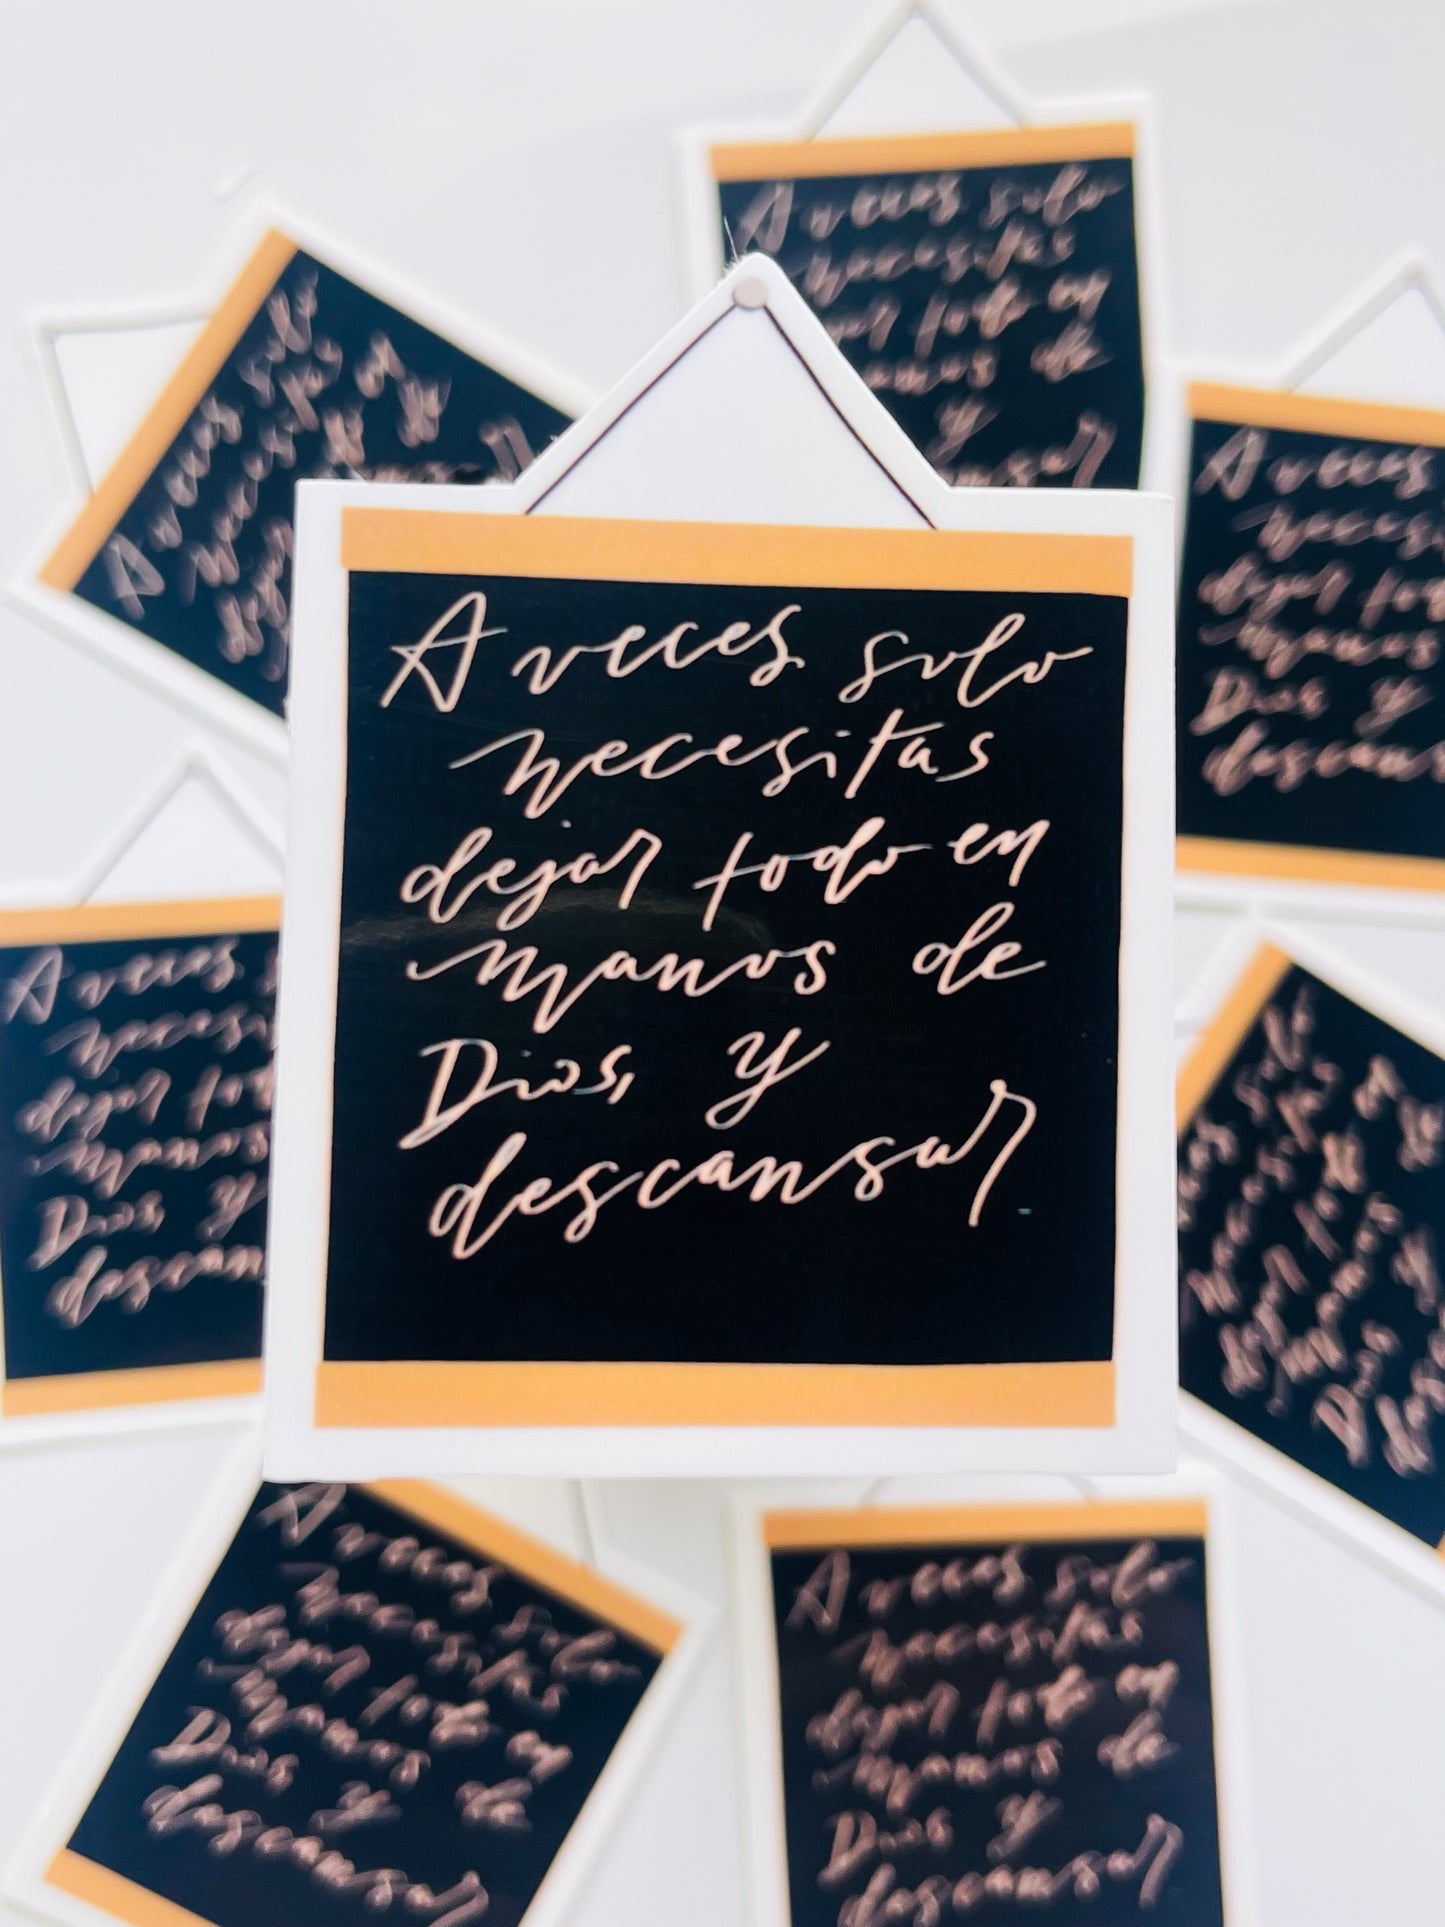 A veces solo
necesitas
dejar todo en
manos de
Dios, y
descansar